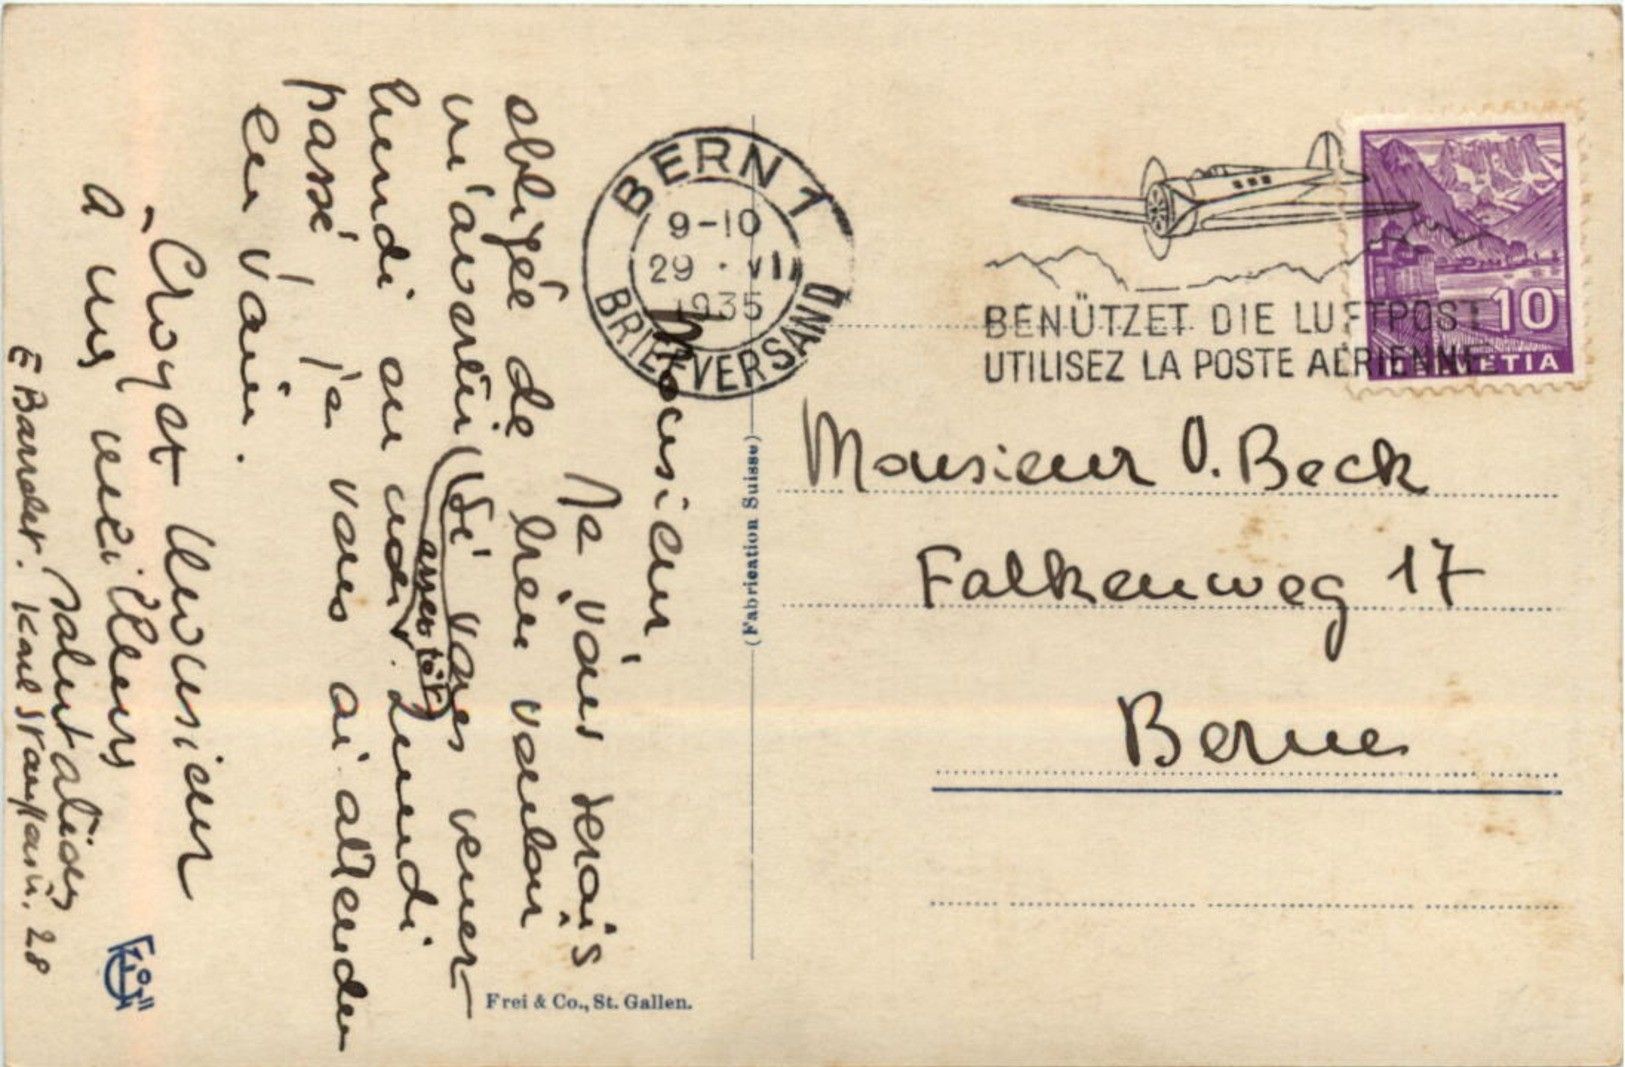 Monsieur,
Je vous serais
obligée de bien vouloir
m'avertir (si vous venez
assez tôt)
lundi ou mardi. Lundi
passé j'ai vous ai attendu
en vain.
Croyez Monsieur
à mes meilleurs
salutations
E Barrelet. 28
BERN 1
9-10
29.VII
1935
BRIEFVERSAND
BENÜTZET DIE LUFTPOST
UTILISEZ LA POSTE AERIENNE
10
HELVETIA
(Fabrication Suisse)
Monsieur O. Beck
Falkenweg 17
Berne
Frei & Co., St. Gallen.